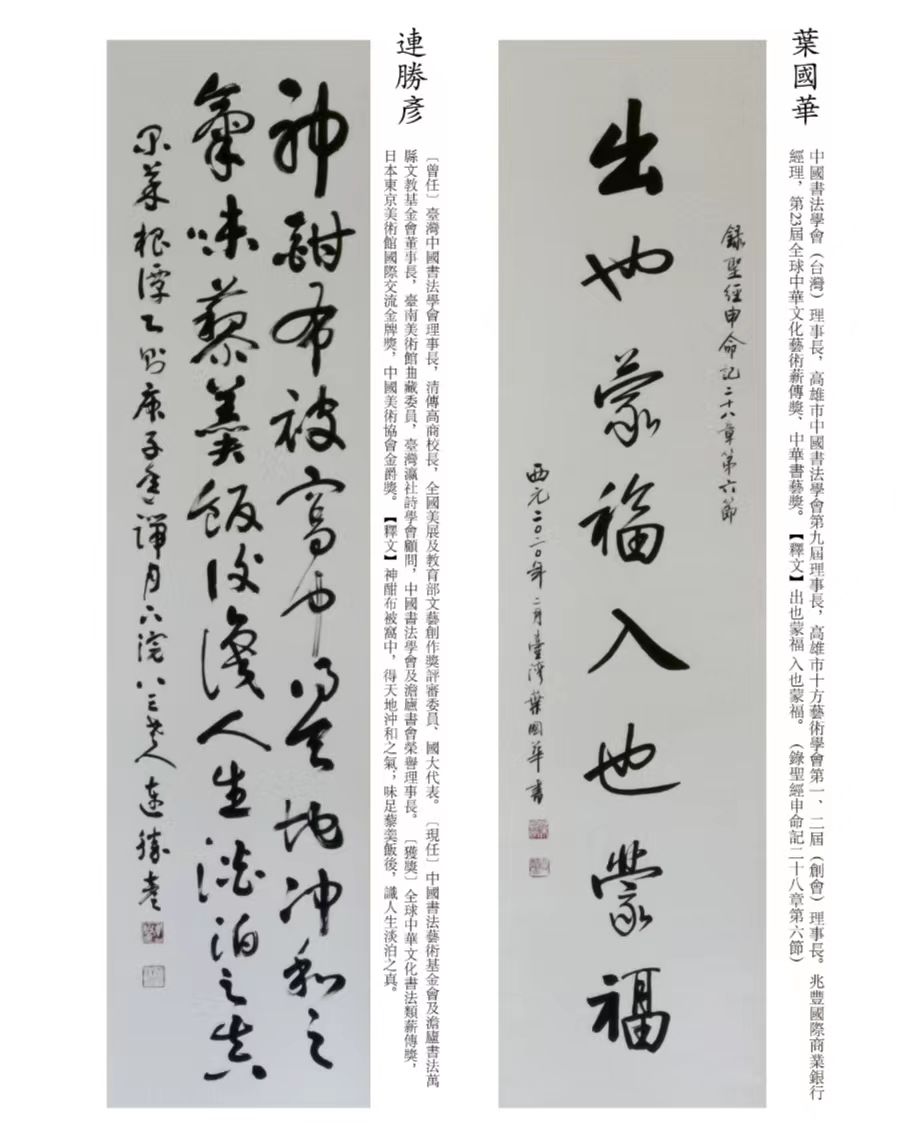 葉國華
中國書法學會（台灣）理事長，高雄市中國書法學會第九屆理事長，高雄市十方藝術學會第一、二屆（創會）理事長。兆豐國際商業銀行
經理，第23屆全球中華文化藝術薪傳獎、中華書藝獎。【釋文】出也蒙福 入也蒙福。（錄聖經申命記二十八章第六節）
錄聖經申命記二十八章第六節
出也蒙福入也蒙福
西元二〇二〇年二月臺灣葉國華書
連勝彥
〔曾任〕臺灣中國書法學會理事長，清傳高商校長，全國美展及教育部文藝創作獎評審委員、國大代表。〔現任〕中國書法藝術基金會及澹廬書法萬
縣文教基金會董事長，臺南美術館典藏委員，臺灣瀛社詩學會顧問，中國書法學會及澹廬書會榮譽理事長。〔獲獎〕全球中華文化書法類薪傳獎，
日本東京美術館國際交流金牌獎，中國美術協會金爵獎。【釋文】神酣布被窩中，得天地沖和之氣；味足藜羹飯後，識人生淡泊之真。
神酣布被窩中得天地沖和之
氣味藜羹飯後識人生淡泊之真
菜根譚乙則庚子年 月 八三老人連勝彥